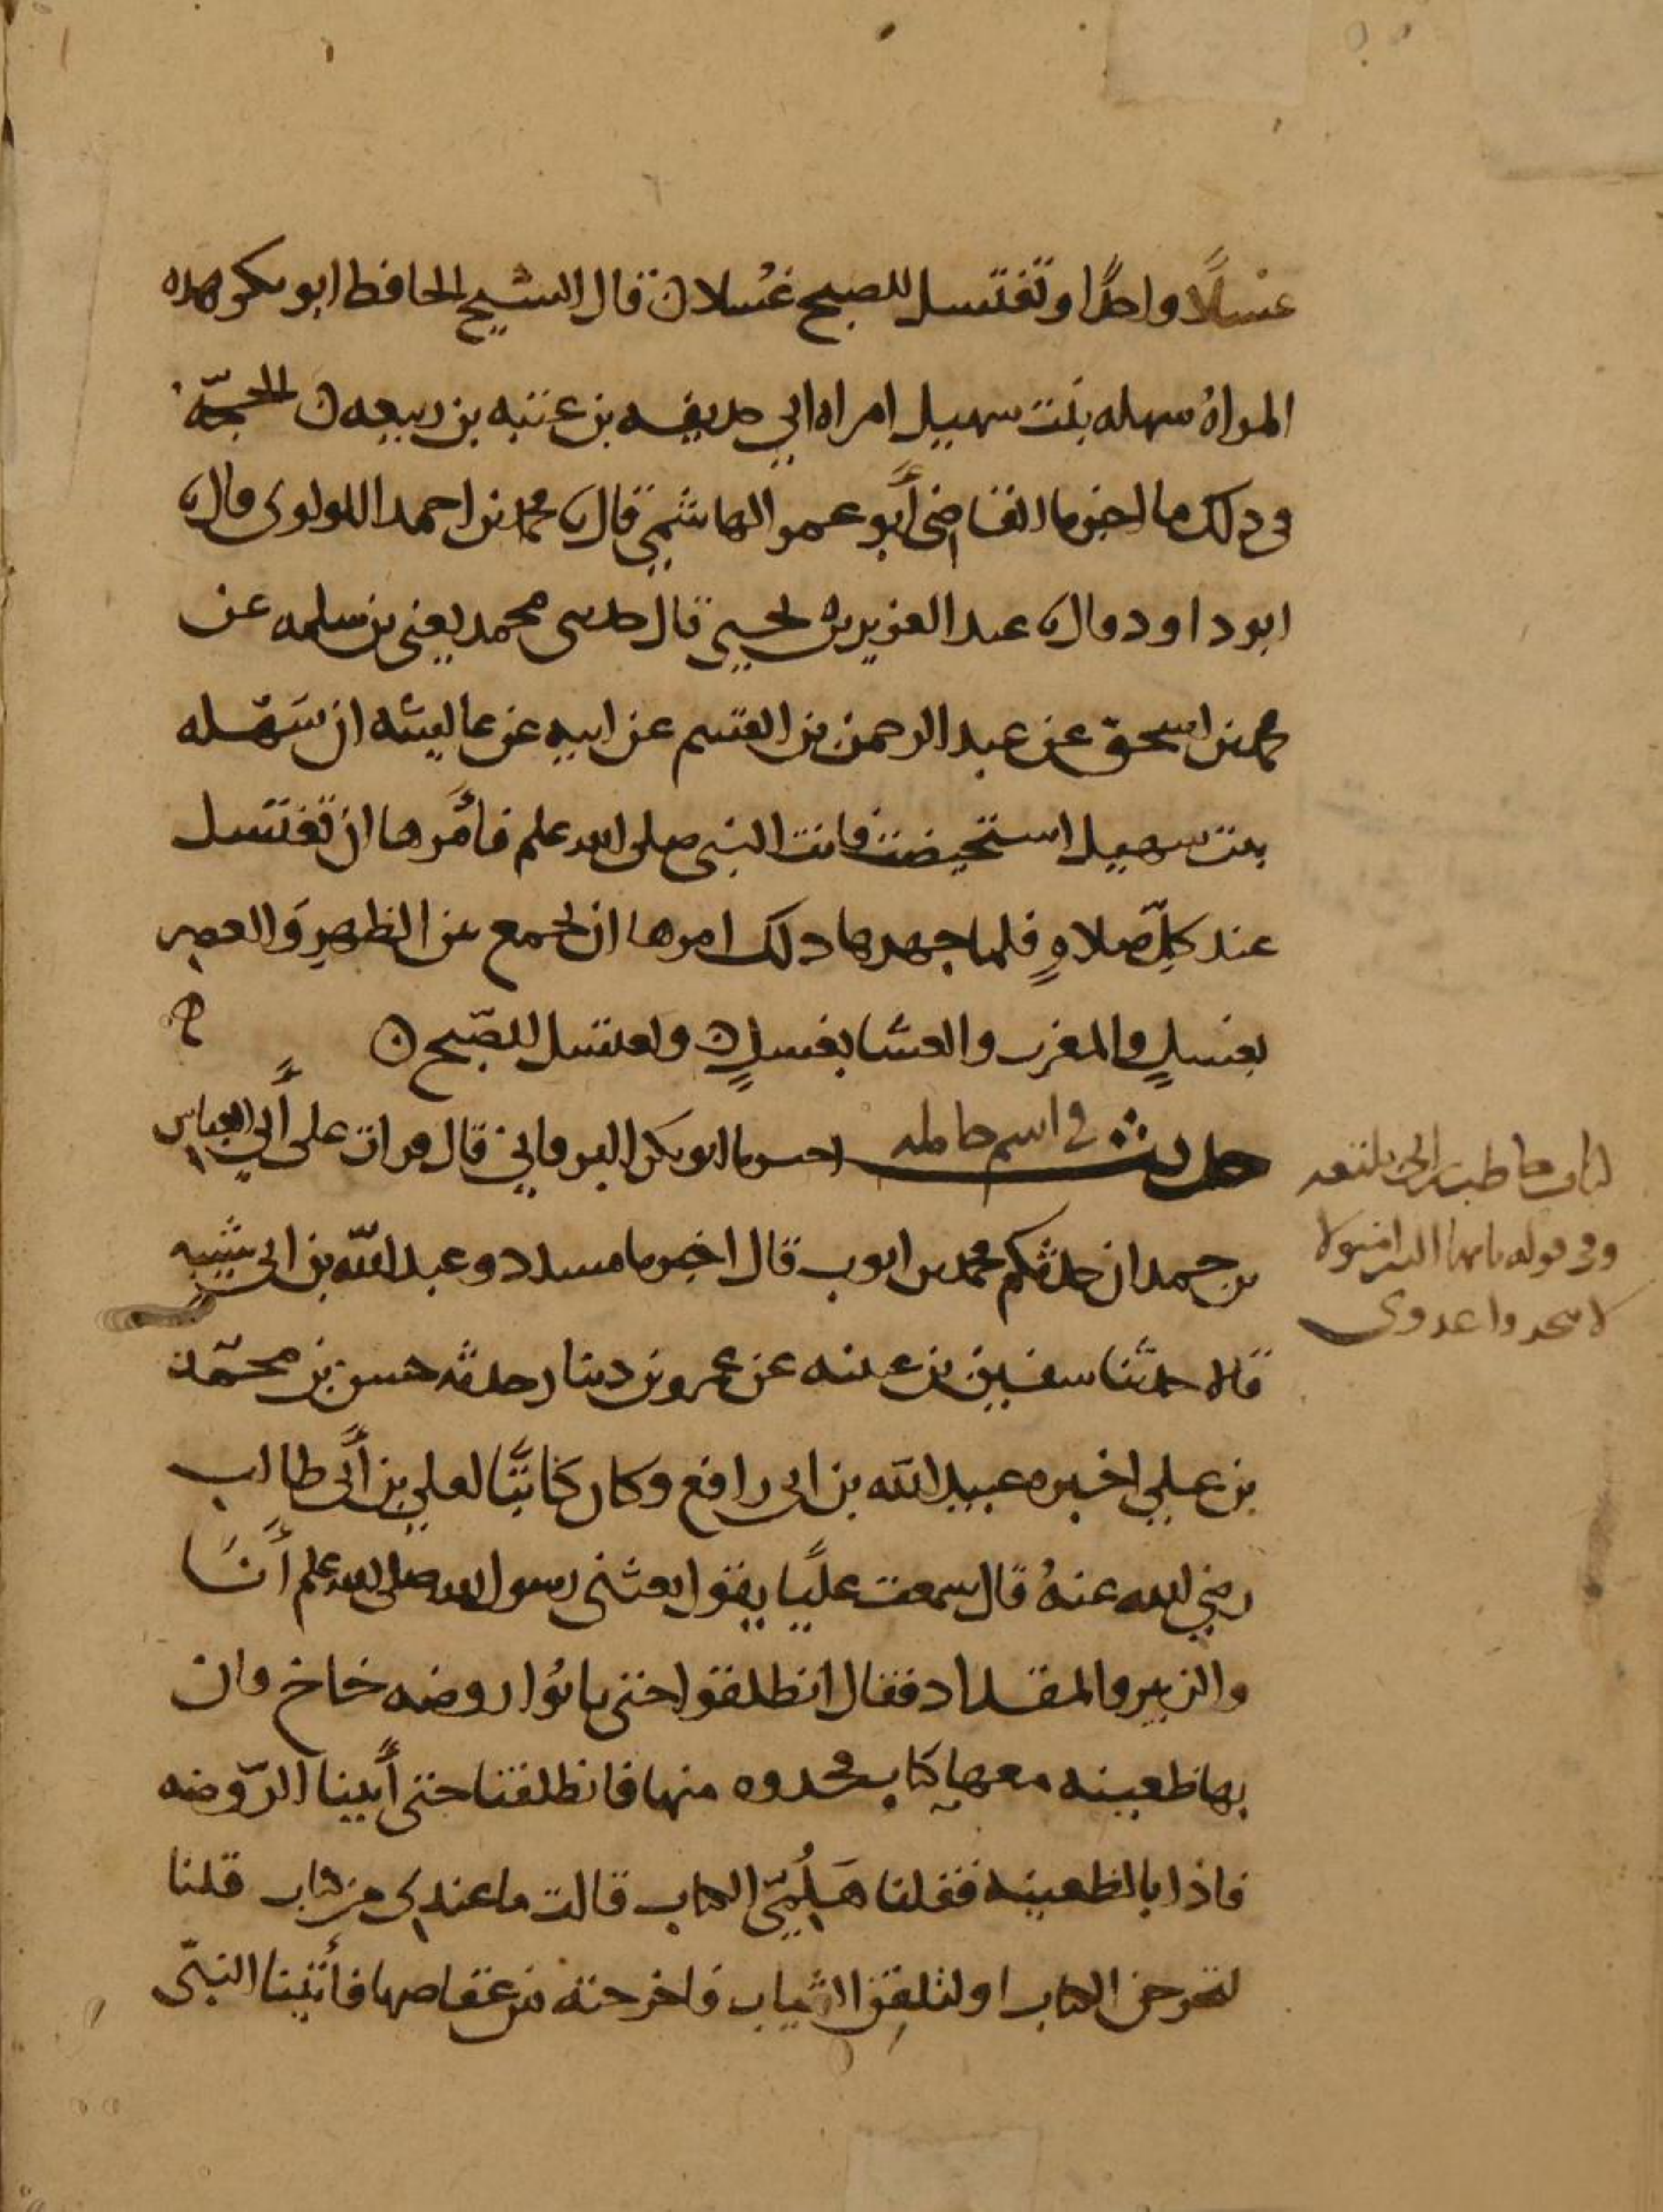 غسْلًا واحدًا وتغتسل للصبح غُسلا ن قال الشيخ الحافظ ابو بكر هذه
المراةُ سهله بنت سهيل امراه ابي حذيفه بن عتبه بن ربيعه ن الحجّة
في ذلك ما اخبرنا القاضى أبو عمر الهاشمي قال نا محمد بن احمد اللولوى قال نا
ابو داود قال نا عبد العزيز بن يحيى قال حدثنى محمد يعني بن سلمه عن
محمد بن اسحق عن عبد الرحمن بن القسم عن ابيه عن عاليشه ان سَهْله
بنت سهيل استحيضت فاتت النبي صلى الله علم فأمَرها ان تغتسل
عند كلِّ صلاةٍ فلما جهدها ذلك امرها ان تجمع بين الظهرِ وَالعصر
بغسلٍ والمغرب والعشا بغسلٍ ن وتغتسل للصّبح ن
حديث في اسم حامله اخبرنا ابو بكر البرقاني قال قرات على أبي العباس
بن حمدان حدثكم محمد بن ايوب قال اخبرنا مسدد وعبد اللّه بن ابي شيبه
قالا حدّثنا سفين بن عيينه عن عمرو بن دينار حدثه حسن بن محمّد
بن علي اخبره عبيد الله بن ابى رافع وكان كاتبًا لعلي بن أبى طالب
رضي الله عنهُ قال سمعت عليًا يقول بعثنى رسول الله صلى الله علم أنَا
والزبير والمقداد فقال انطلقوا حتى تاتُوا روضه خاخ فان
بها ظعينه معها كتاب فخدوه منها فانطلقنا حتى أتينا الرّوضه
فاذا بالظعينه فقلنا هَلُمّي الكتاب قالت ما عندى من كتاب قلنا
لتخرجن الكتاب او لتلقِيَن الثياب فاخرجته من عقاصها فأتينا النبّى
كتاب حاطب الى بلتعه
وفي قوله يا يها الدين امنوا لا
لا تتحدوا عدوى